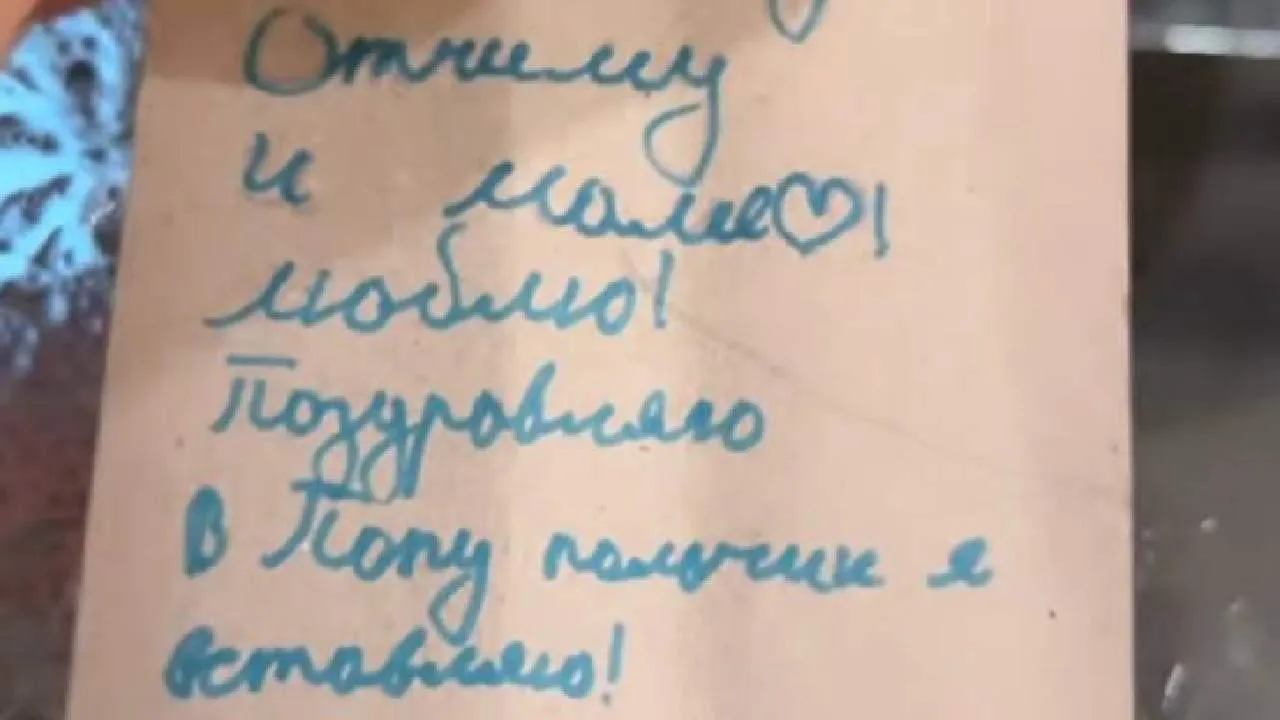 Отчиму
и маме♡!
люблю!
Поздровляю
В Попу пальчик я
вставляю!